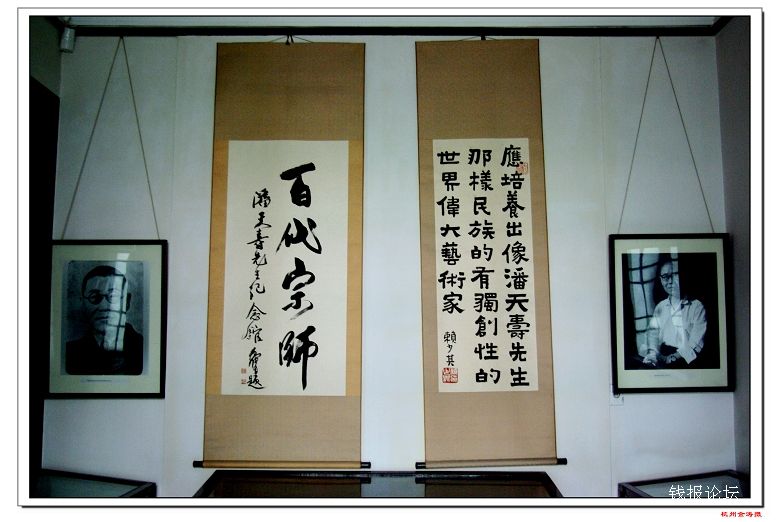 應培養出像潘天壽先生
那樣民族的有獨創性的
世界偉大藝術家
賴少其
百代宗師
潘天壽先生紀念館
題
钱报论坛